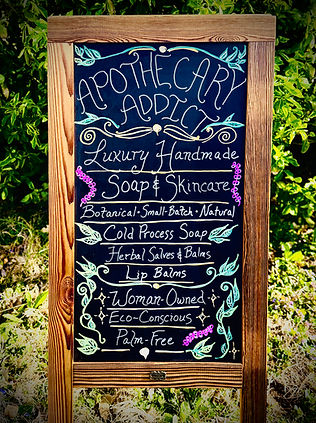 APOTHECARY
ADDICT
Luxury Handmade
Soap & Skincare
Botanical • Small-Batch • Natural
Cold Process Soap
Herbal Salves & Balms
Lip Balms
Woman-Owned
Eco-Conscious
Palm-Free